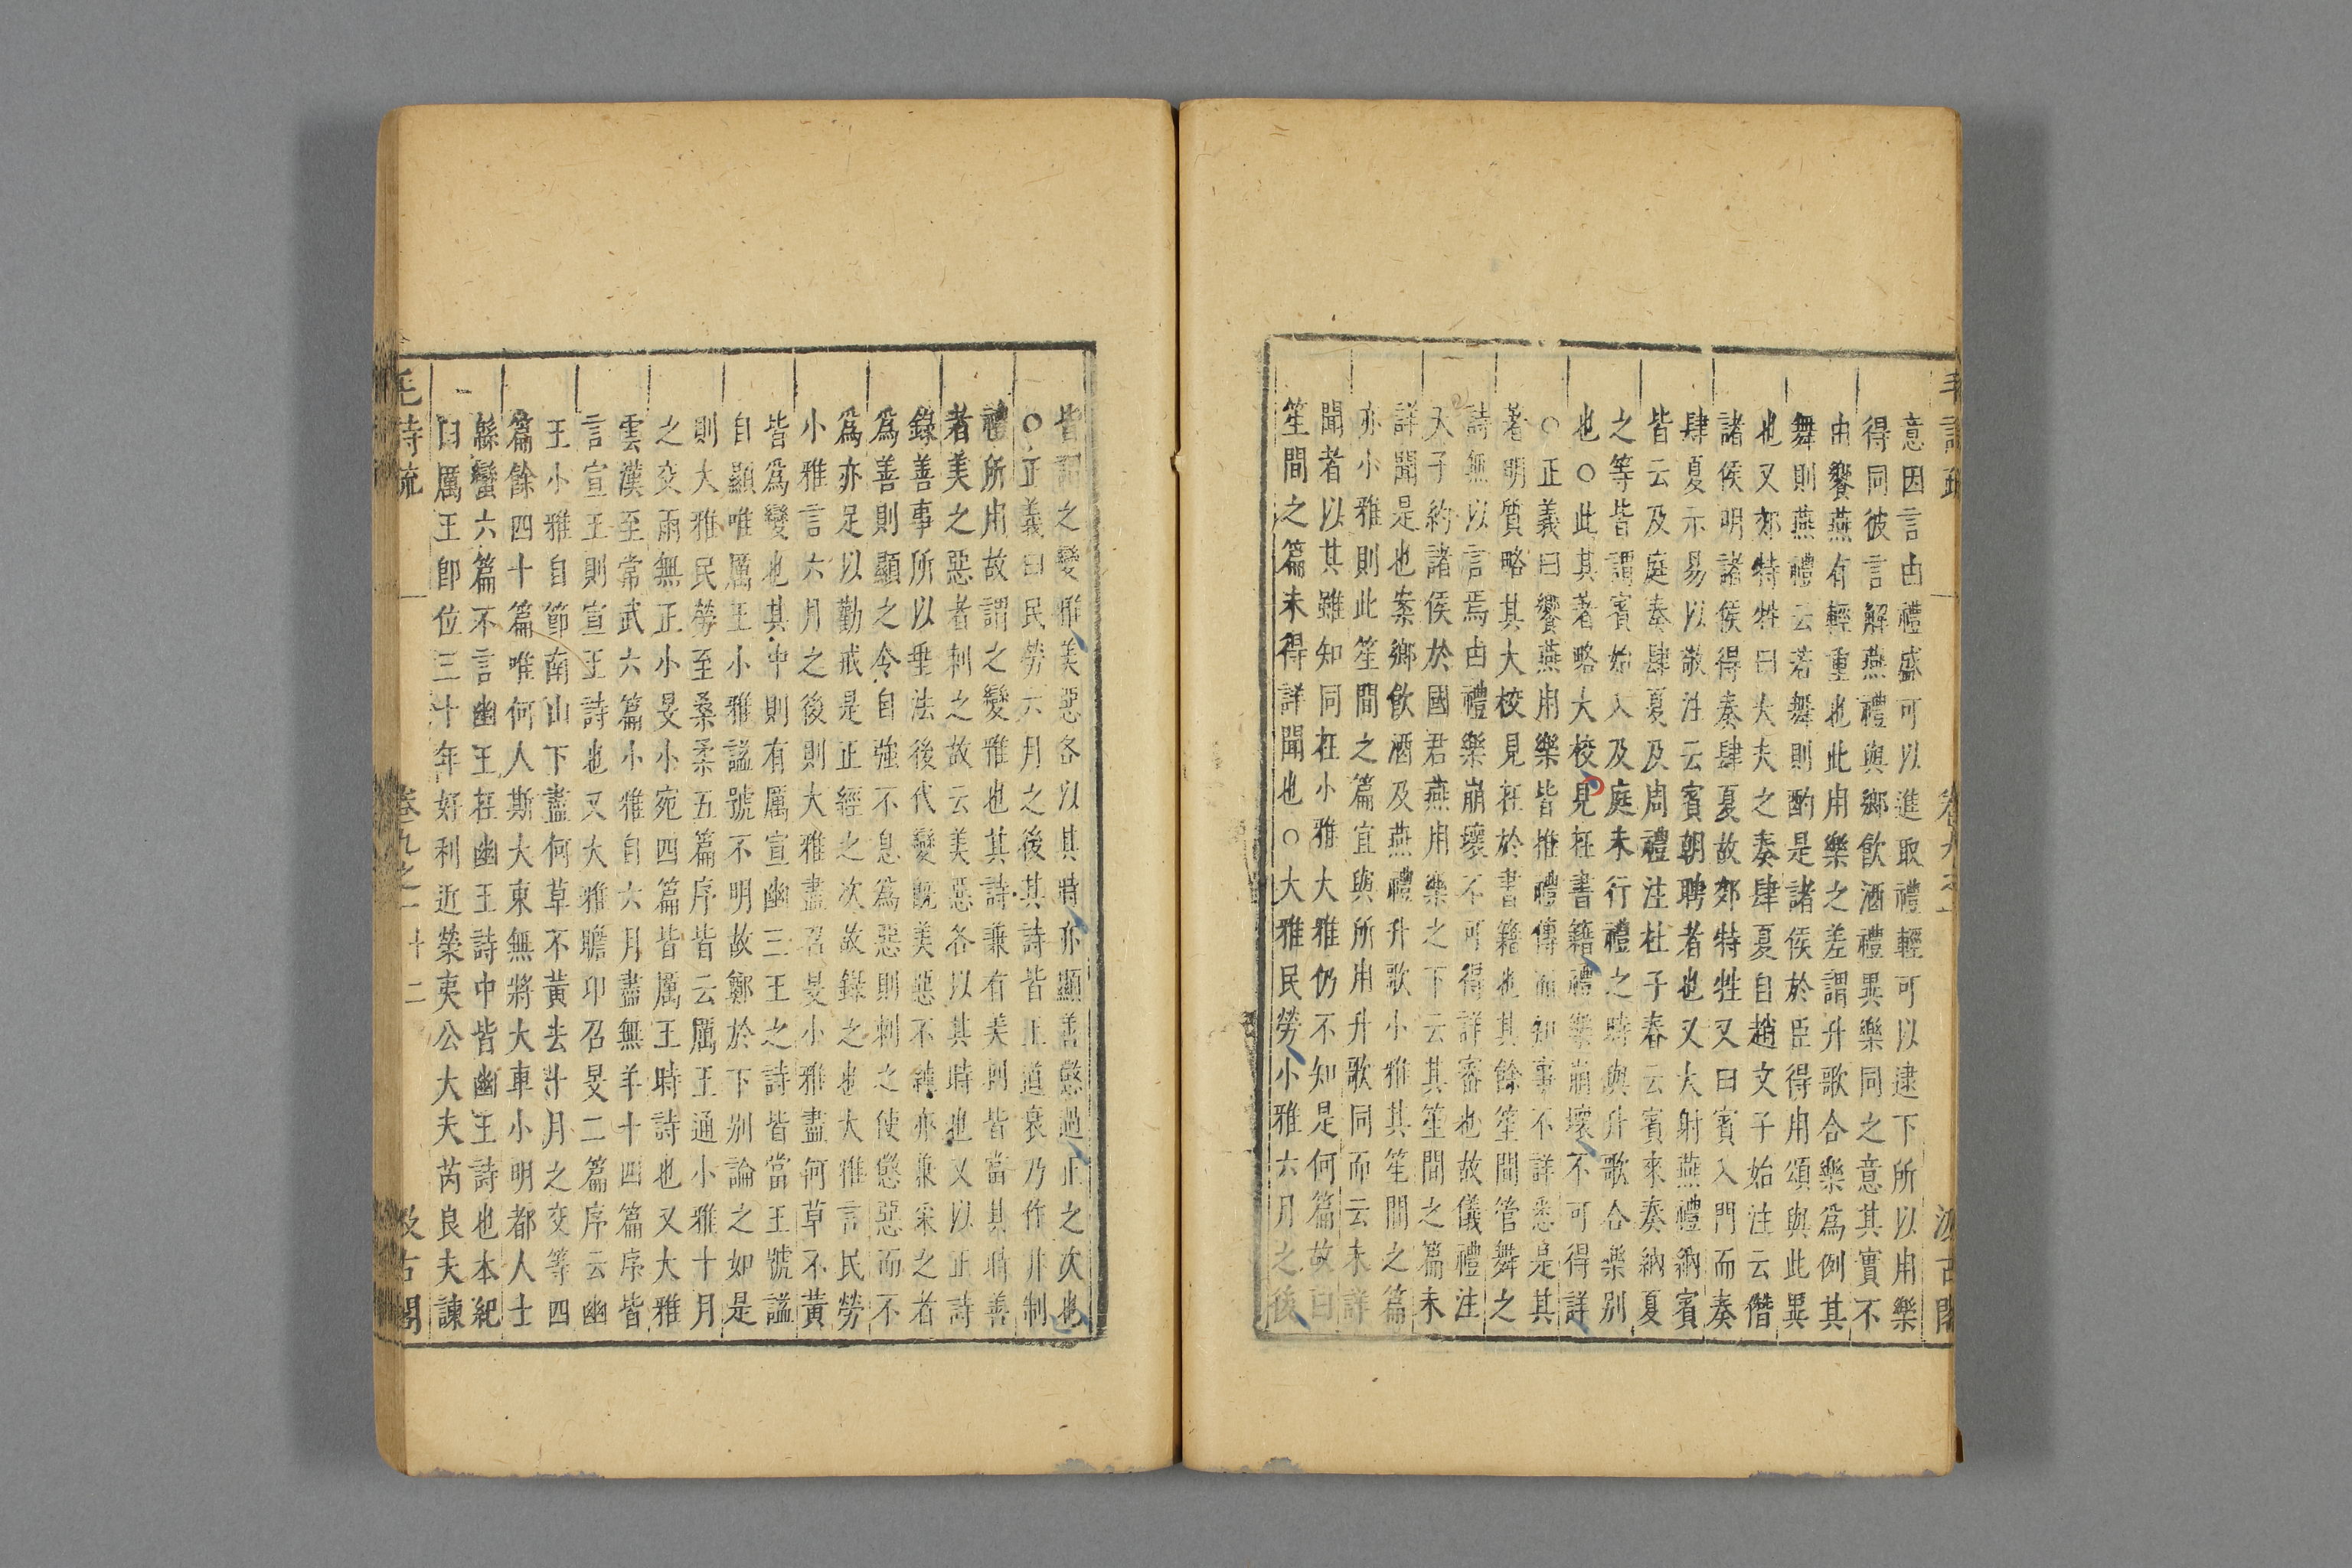 意因言由禮盛可以進取禮輕可以逮下所以用樂
得同彼言解燕禮與鄉飲酒禮異樂同之意其實不
由饗燕有輕重也此用樂之差謂升歌合樂為例其
舞則燕禮云若舞則酌是諸侯於臣得用頌與此異
也又郊特牲曰大夫之奏肆夏自趙文子始注云僭
諸侯明諸侯得奏肆夏故郊特牲又曰賓入門而奏
肆夏示易以敬注云賓朝聘者也又大射燕禮納賓
皆云及庭奏肆夏及周禮注杜子春云賓來奏納夏
之等皆謂賓始入及庭未行禮之時與升歌合樂別
也○此其著略大校見在書籍禮樂崩壞不可得詳
○正義曰饗燕用樂皆推禮傳而知事不詳悉是其
著明質略其大校見在於書籍也其餘笙間管舞之
詩無以言焉由禮樂崩壞不可得詳審也故儀禮注
天子約諸侯於國君燕用樂之下云其笙間之篇未
詳聞是也案鄉飲酒及燕禮升歌小雅其笙間之篇
亦小雅則此笙間之篇宜與所用升歌同而云未詳
聞者以其雖知同在小雅大雅仍不知是何篇故曰
笙間之篇未得詳聞也○大雅民勞小雅六月之後
皆謂之變雅美惡各以其時亦顯善懲過正之次也
○正義曰民勞六月之後其詩皆王道衰乃作非制
禮所用故謂之變雅也其詩兼有美刺皆當其時善
者美之惡者刺之故云美惡各以其時也又以正詩
錄善事所以垂法後代變既美惡不純亦兼采之者
為善則顯之令自強不息為惡則刺之使懲惡而不
為亦足以勸戒是正經之次故錄之也大雅言民勞
小雅言六月之後則大雅盡召旻小雅盡何草不黃
皆為變也其中則有厲宣幽三王之詩皆當王號諡
自顯唯厲王小雅諡號不明故鄭於下別論之如是
則大雅民勞至桑柔五篇序皆云厲王通小雅十月
之交雨無正小旻小宛四篇皆厲王時詩也又大雅
雲漢至常武六篇小雅自六月盡無羊十四篇序皆
言宣王則宣王詩也又大雅瞻卬召旻二篇序云幽
王小雅自節南山下盡何草不黃去十月之交等四
篇餘四十篇唯何人斯大東無將大車小明都人士
緜蠻六篇不言幽王在幽王詩中皆幽王詩也本紀
曰厲王即位三十年好利近榮夷公大夫芮良夫諫
毛詩疏 卷九之一 十二 汲古閣